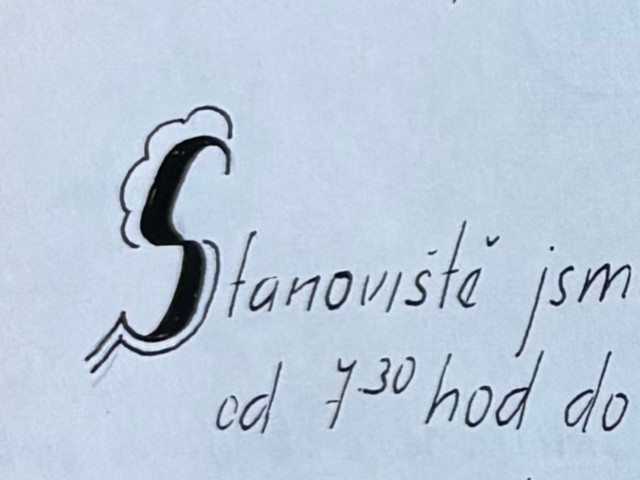 Stanoviště jsm
od 7³⁰ hod do